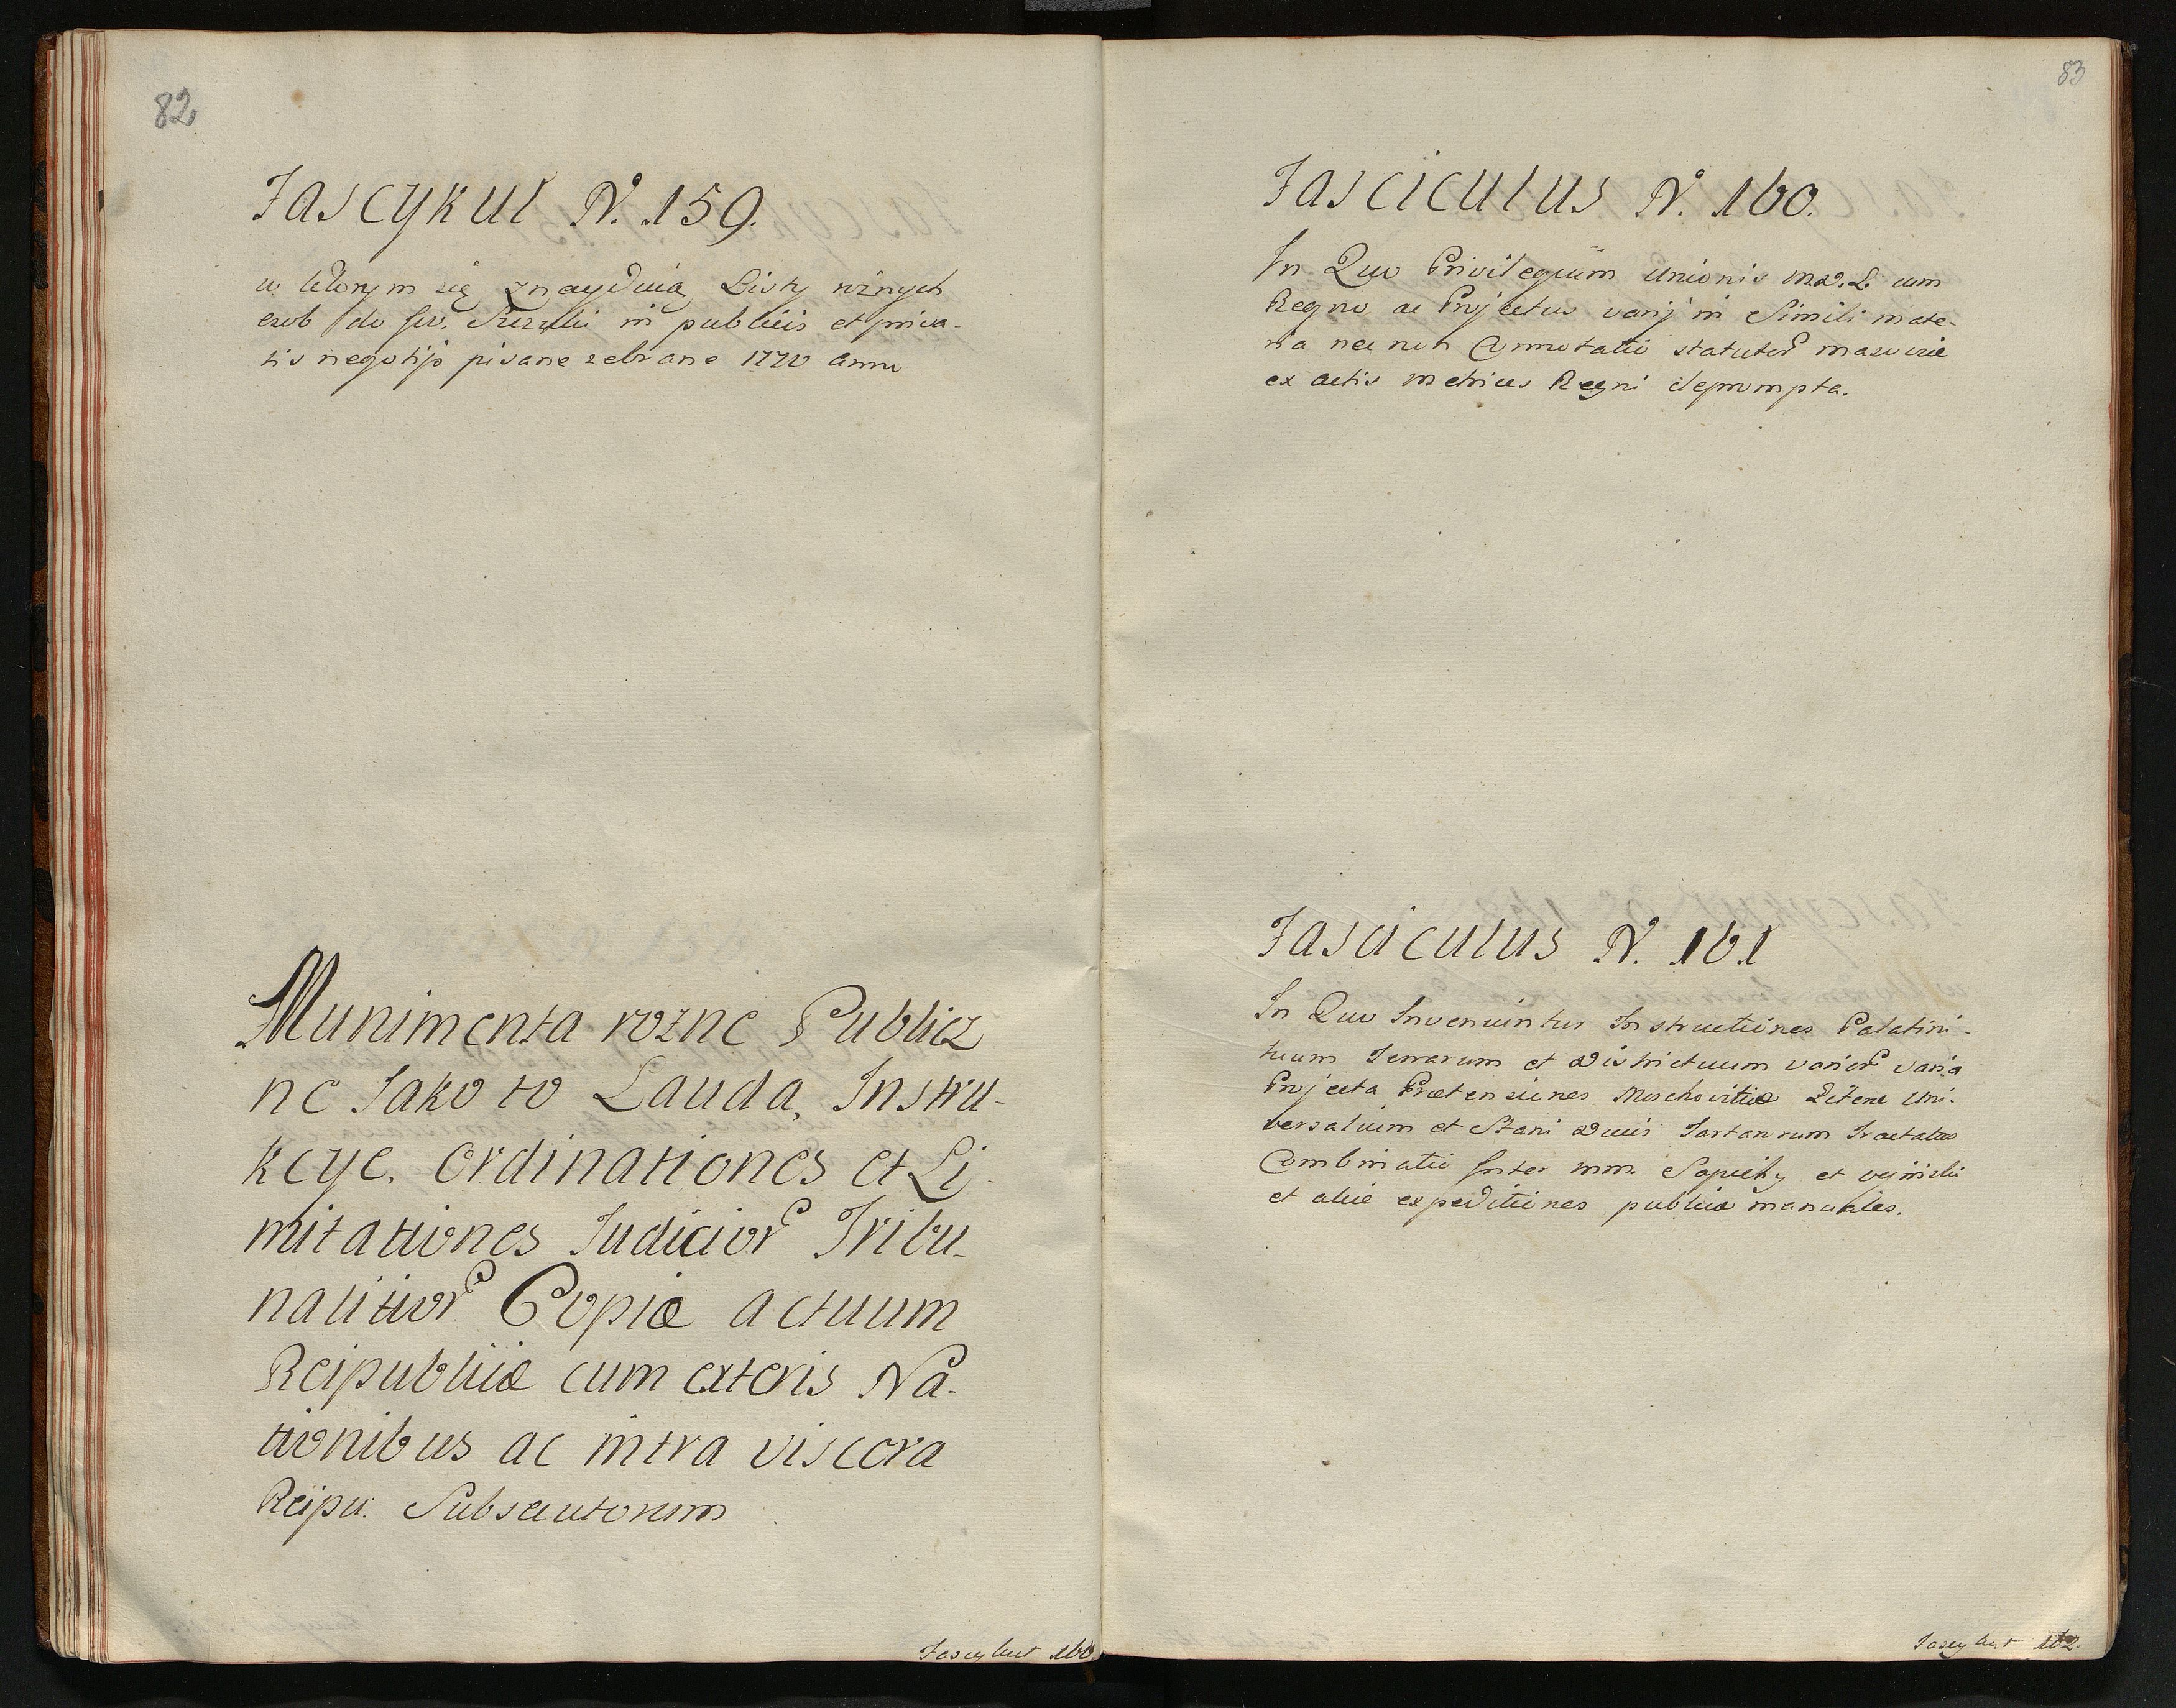 82
Fascykul N. 159.
w ktorym się znayduią Listy roznych
osob do JW. Rzeszki in publicis et priva-
tis negotijs pisane zebrane 1720 Anno
Munimenta rozne Publicz
ne Jako to Lauda, Instru-
kcye. Ordinationes et Li-
mitationes Judicior Tribu-
nalitior Copiæ actuum
Reipublicæ cum exteris Na-
tionibus ac intra viscera
Reipu: Subsecutorum
Fascykul 160.
83
Fasciculus N. 160.
In Quo Privilegium Unionis M.D.L. cum
Regno ac Projectus varij in Simili mate-
ria nec non Connotatio statutor Masoviæ
ex actis Metrices Regni deprompta.
Fasciculus N. 161
In Quo Inveniuntur Instructiones Palatini-
tuum Terrarum et Districtuum varior varia
Projecta Prætensiones Moschoviticæ Literæ Uni-
versalium et Stani Ducis Tartarorum Tractatus
Combinatio Inter MM. Sapiehy et Oginski
et aliæ expeditiones publicæ manuales.
Fascykul 162.